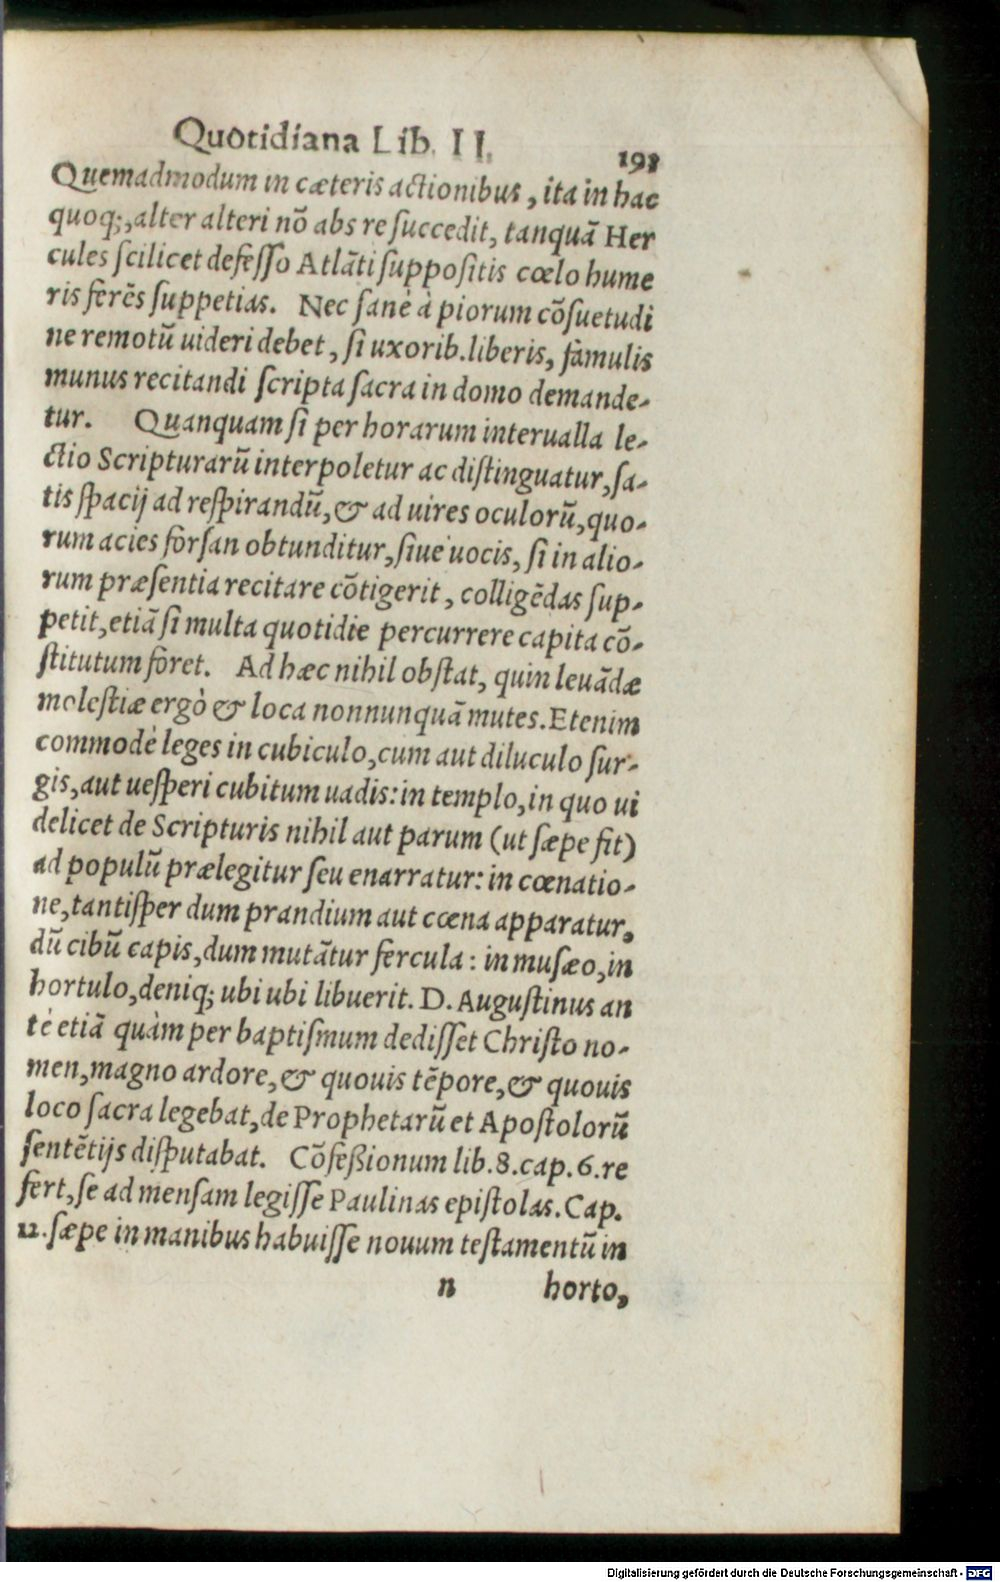 Quotidiana Lib. II.
193
Quemadmodum in cæteris actionibus, ita in hac
quoq;, alter alteri nõ abs re ſuccedit, tanquã Her
cules ſcilicet defeſſo Atlãti ſuppoſitis cœlo hume
ris ferẽs ſuppetias. Nec ſanè à piorum cõſuetudi
ne remotũ uideri debet, ſi uxorib. liberis, famulis
munus recitandi ſcripta ſacra in domo demande-
tur. Quanquam ſi per horarum interualla le-
ctio Scripturarũ interpoletur ac diſtinguatur, ſa-
tis ſpacij ad reſpirandũ, & ad uires oculorũ, quo-
rum acies forſan obtunditur, ſiue uocis, ſi in alio-
rum præſentia recitare cõtigerit, colligẽdas ſup-
petit, etiã ſi multa quotidie percurrere capita cõ-
ſtitutum foret. Ad hæc nihil obſtat, quin leuãdæ
moleſtiæ ergò & loca nonnunquã mutes. Etenim
commodè leges in cubiculo, cum aut diluculo ſur-
gis, aut ueſperi cubitum uadis: in templo, in quo ui
delicet de Scripturis nihil aut parum (ut ſæpe fit)
ad populũ prælegitur ſeu enarratur: in cœnatio-
ne, tantiſper dum prandium aut cœna apparatur,
dũ cibũ capis, dum mutãtur fercula: in muſæo, in
hortulo, deniq; ubi ubi libuerit. D. Auguſtinus an
tè etiã quàm per baptiſmum dediſſet Chriſto no-
men, magno ardore, & quouis tẽpore, & quouis
loco ſacra legebat, de Prophetarũ et Apoſtolorũ
ſentẽtijs diſputabat. Cõfeßionum lib. 8. cap. 6. re
fert, ſe ad menſam legiſſe Paulinas epiſtolas. Cap.
12. ſæpe in manibus habuiſſe nouum teſtamentũ in
n horto,
Digitalisierung gefördert durch die Deutsche Forschungsgemeinschaft - DFG